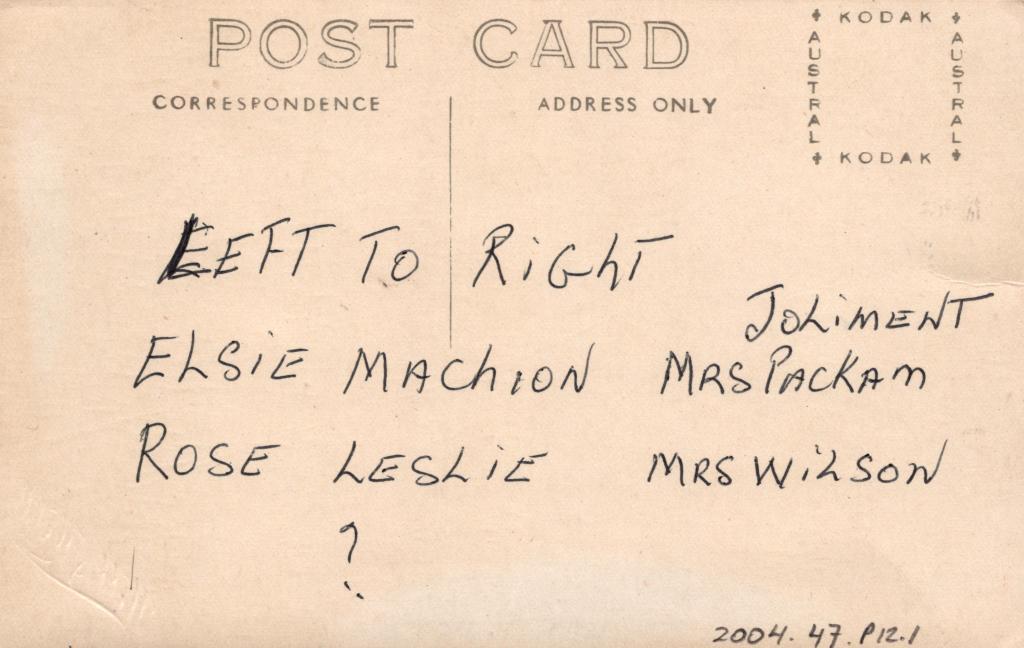 POST CARD
CORRESPONDENCE
ADDRESS ONLY
KODAK
AUSTRAL
AUSTRAL
KODAK
LEFT TO RIGHT
JOLIMENT
ELSIE MACHION MRS PACKAM
ROSE LESLIE MRS WILSON
?
2004.47.P12.1